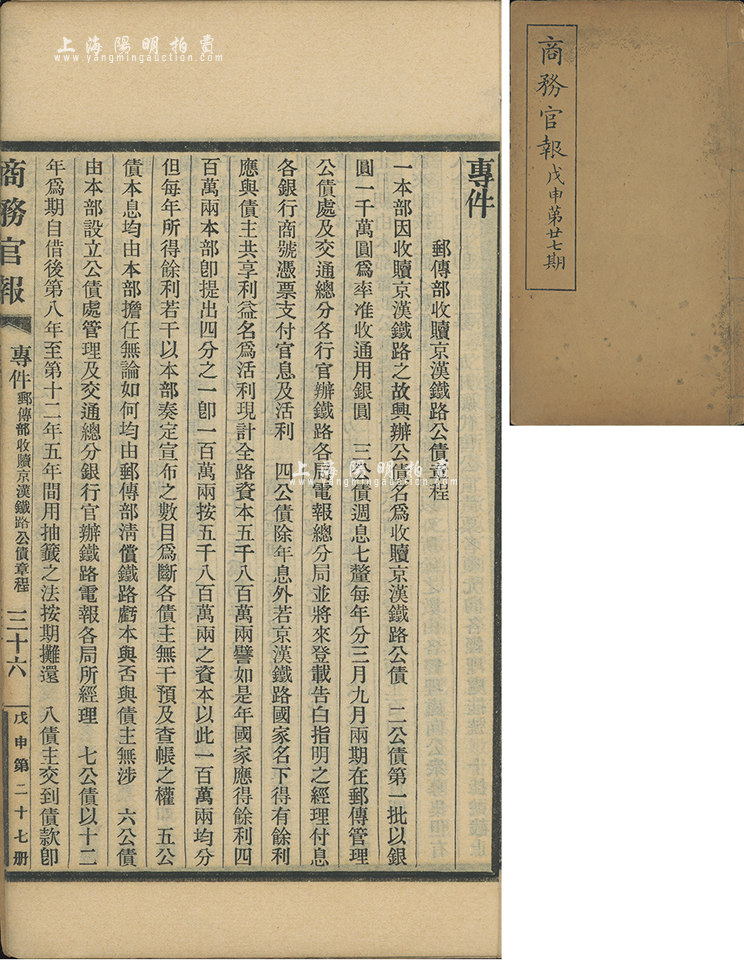 專件
郵傳部收贖京漢鐵路公債章程
一本部因收贖京漢鐵路之故興辦公債名爲收贖京漢鐵路公債　二公債第一批以銀
圓一千萬圓爲率准收通用銀圓　三公債週息七釐每年分三月九月兩期在郵傳管理
公債處及交通總分各行官辦鐵路各局電報總分局並將來登載告白指明之經理付息
各銀行商號憑票支付官息及活利　四公債除年息外若京漢鐵路國家名下得有餘利
應與債主共享利益名爲活利現計全路資本五千八百萬兩譬如是年國家應得餘利四
百萬兩本部卽提出四分之一卽一百萬兩按五千八百萬兩之資本以此一百萬兩均分
但每年所得餘利若干以本部奏定宣布之數目爲斷各債主無干預及查帳之權　五公
債本息均由本部擔任無論如何均由郵傳部淸償鐵路虧本與否與債主無涉　六公債
由本部設立公債處管理及交通總分銀行官辦鐵路電報各局所經理　七公債以十二
年爲期自借後第八年至第十二年五年間用抽籤之法按期攤還　八債主交到債款卽
商務官報
專件 郵傳部收贖京漢鐵路公債章程
三十六
戊申第二十七册
商務官報戊申第廿七期
上海陽明拍賣
www.yangmingauction.com
上海陽明拍賣
www.yangmingauction.com